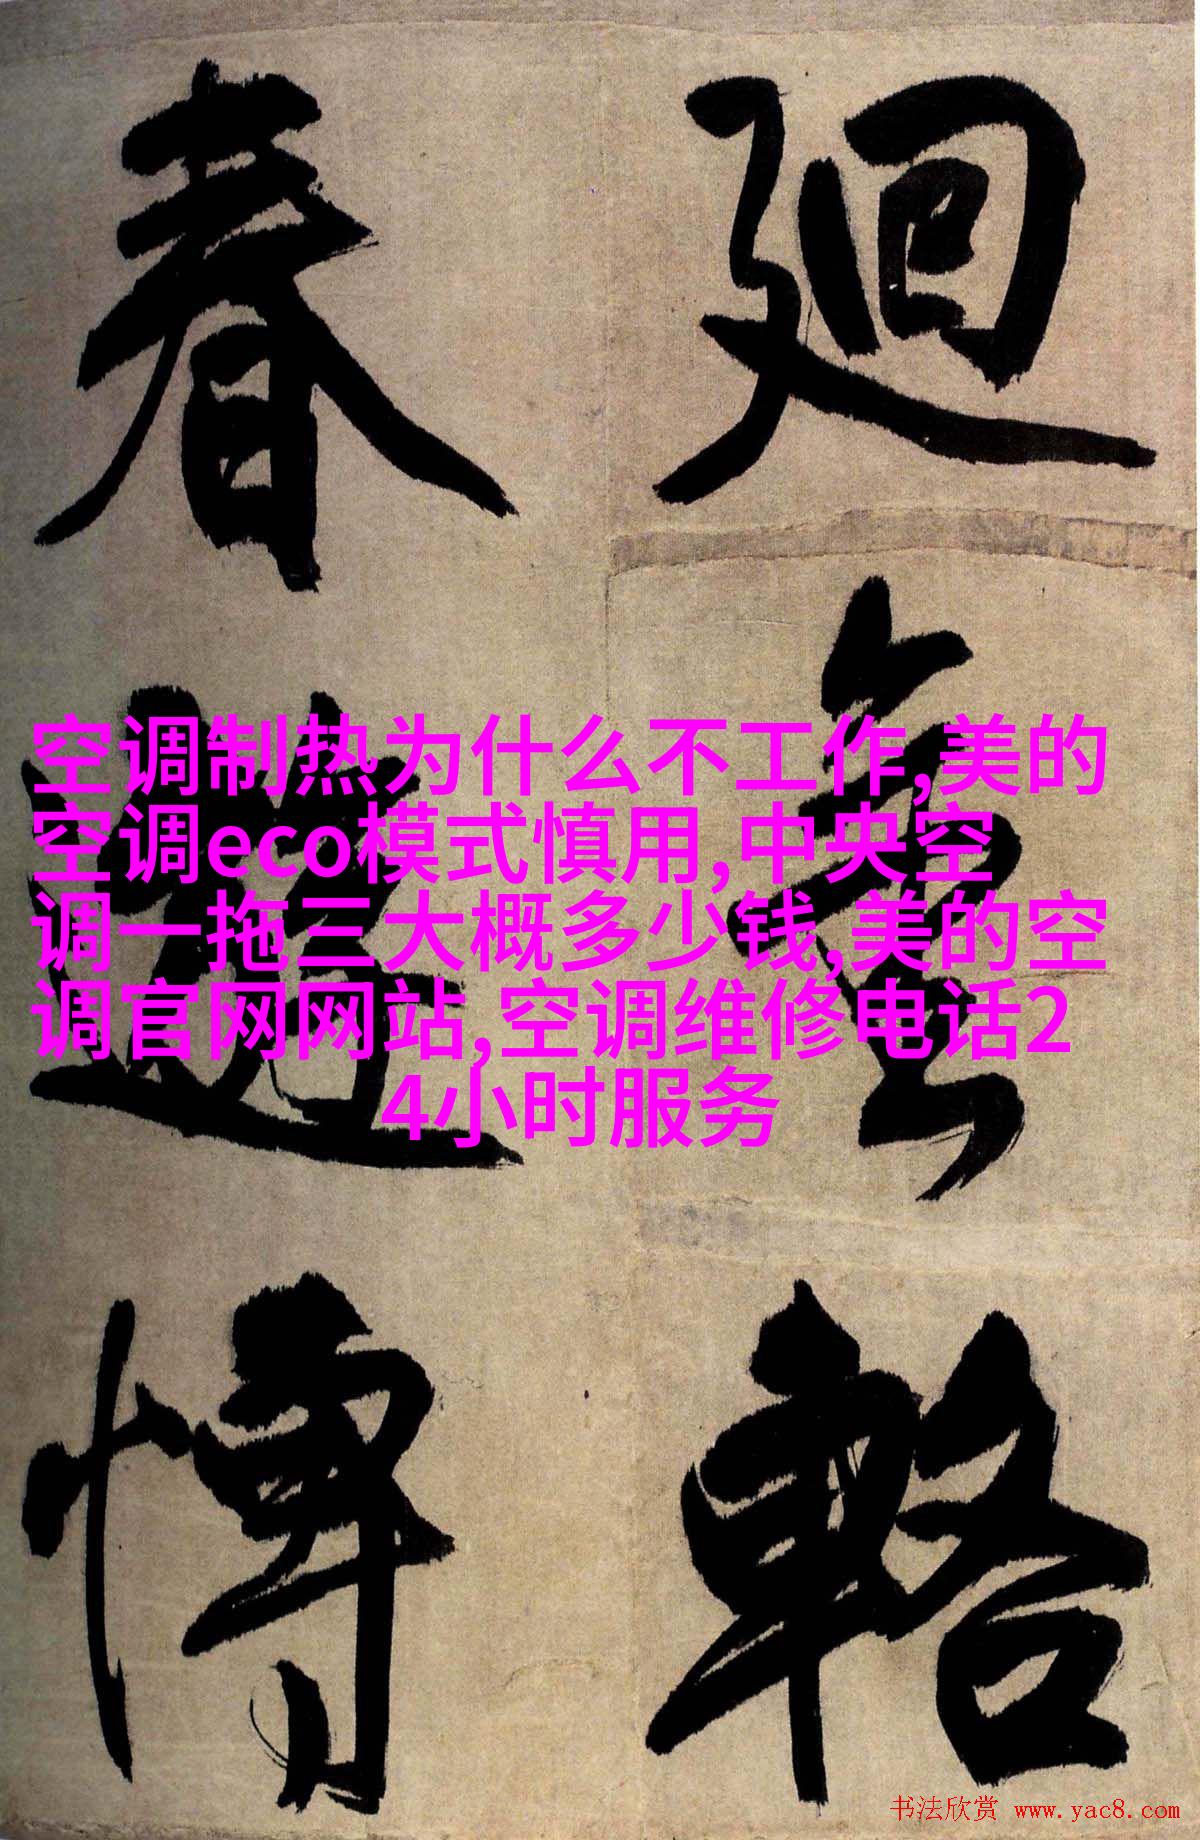 迴輅
春愽
空调制热为什么不工作,美的
空调eco模式慎用,中央空
调一拖三大概多少钱,美的空
调官网网站,空调维修电话2
4小时服务
书法欣赏 www.yac8.com